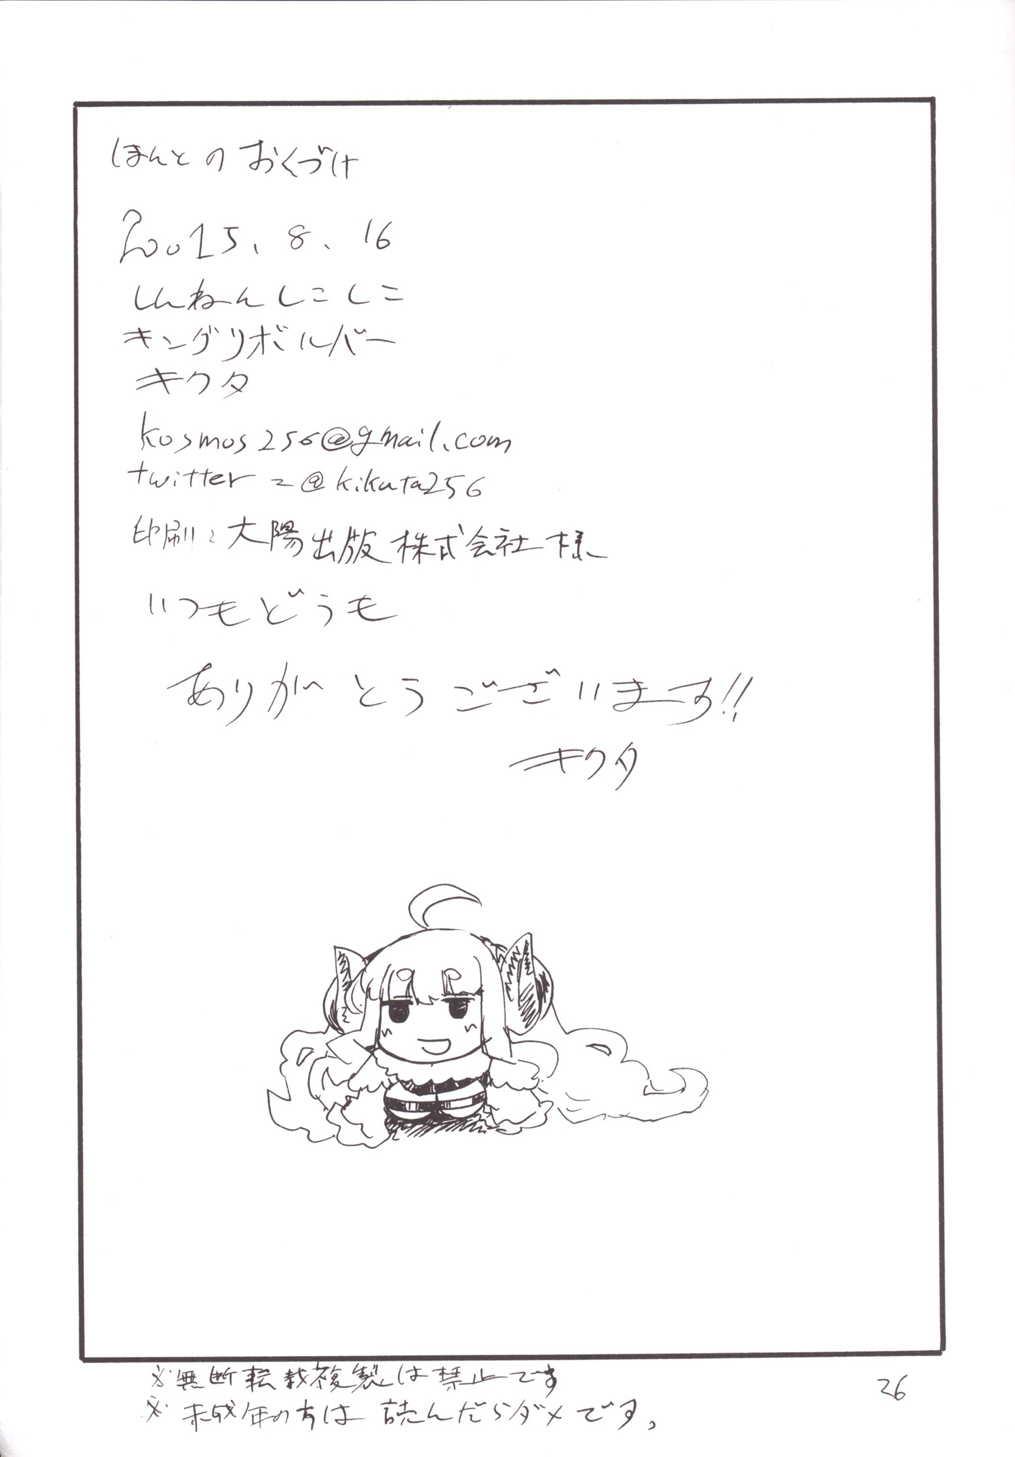 ほんとのおくづけ
2015、8、16
しんねんしこしこ
キングリボルバー
キクタ
kosmos256@gmail.com
twitter = @kikuta256
印刷:大陽出版株式会社様
いつもどうも
ありがとうございます!!
キクタ
※無断転載複製は禁止です
※未成年の方は読んだらダメです。
26